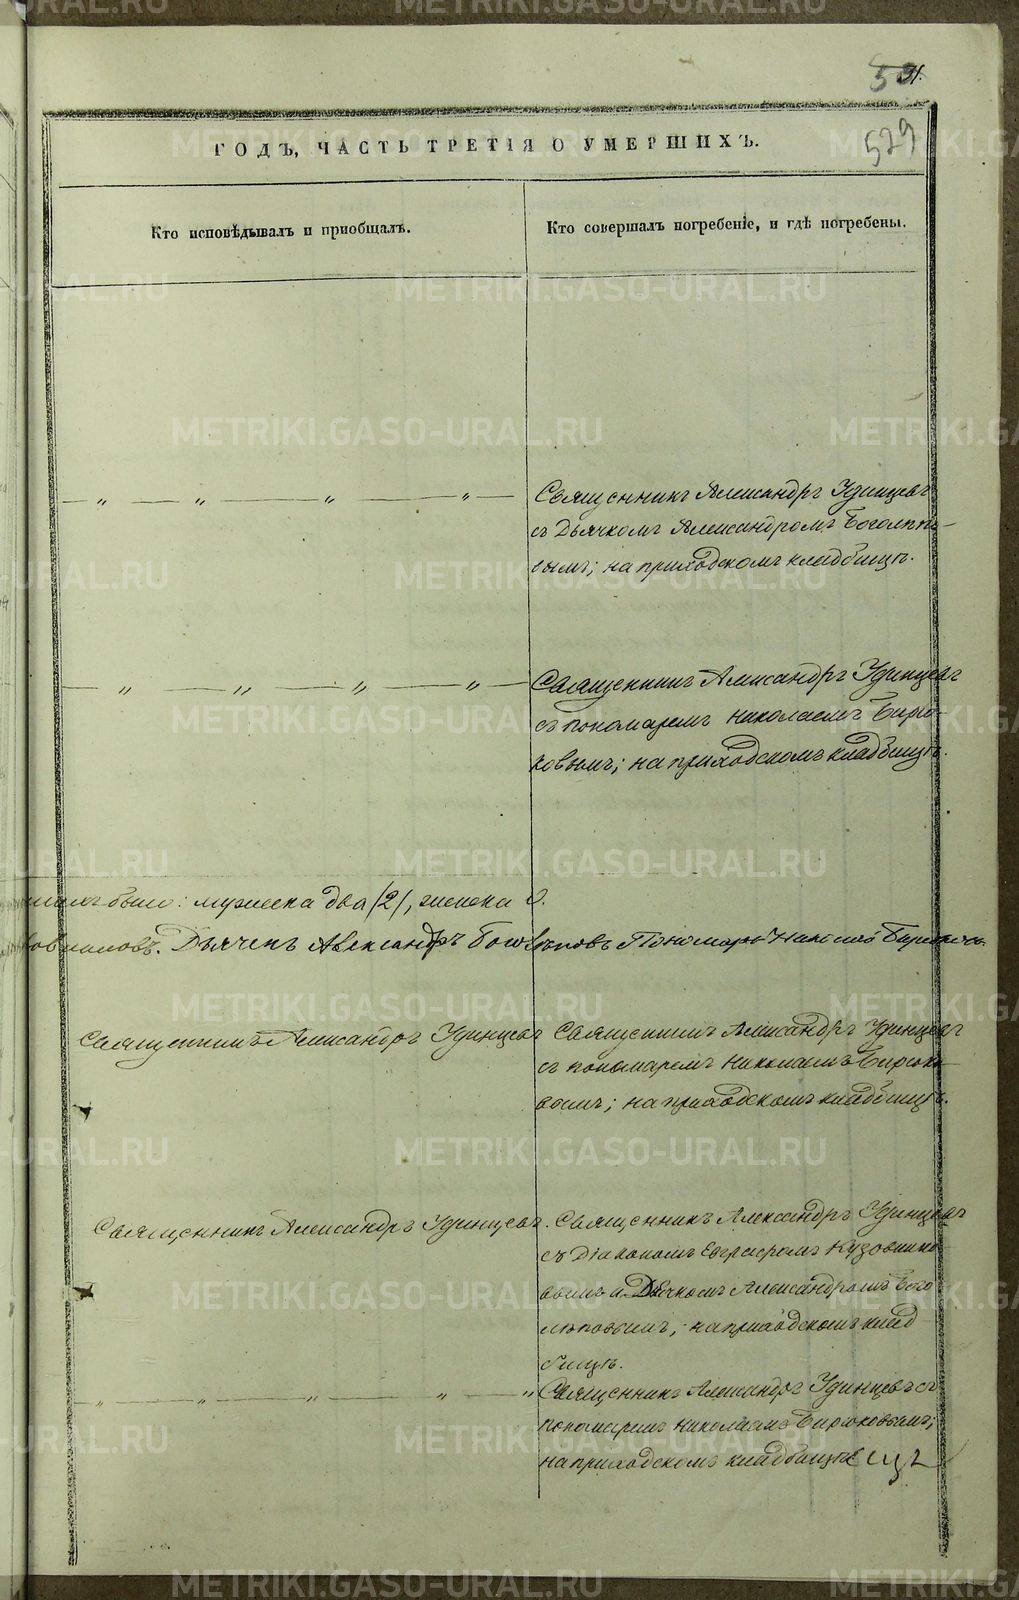 91.
529
ГОДЪ, ЧАСТЬ ТРЕТІЯ О УМЕРШИХЪ.
Кто исповѣдывалъ и приобщалъ.
Кто совершалъ погребеніе, и гдѣ погребены.
— „ — „ — „ — „ —
Священникъ Александръ Удинцевъ
съ Дьячкомъ Александромъ Боголѣпо-
вымъ; на приходскомъ кладбищѣ.
— „ — „ — „ — „ —
Священникъ Александръ Удинцевъ
съ пономаремъ Николаемъ Бирю-
ковымъ; на приходскомъ кладбищѣ.
было: мужеска два /2/, женска 0.
Дьячекъ Александръ Боголѣповъ Пономарь Николай Бирюковъ.
Священникъ Александръ Удинцевъ
Священникъ Александръ Удинцевъ
съ пономаремъ Николаемъ Бирюко-
вымъ; на приходскомъ кладбищѣ.
Священникъ Александръ Удинцевъ.
Священникъ Александръ Удинцевъ
съ Діакономъ Евграфомъ Кузовнико
вымъ и Дьячкомъ Александромъ Бого
лѣповымъ; на приходскомъ клад
бищѣ.
— „ — „ — „ — „ — „
Священникъ Александръ Удинцевъ съ
пономаремъ Николаемъ Бирюковымъ;
на приходскомъ кладбищѣ
METRIKI.GASO-URAL.RU